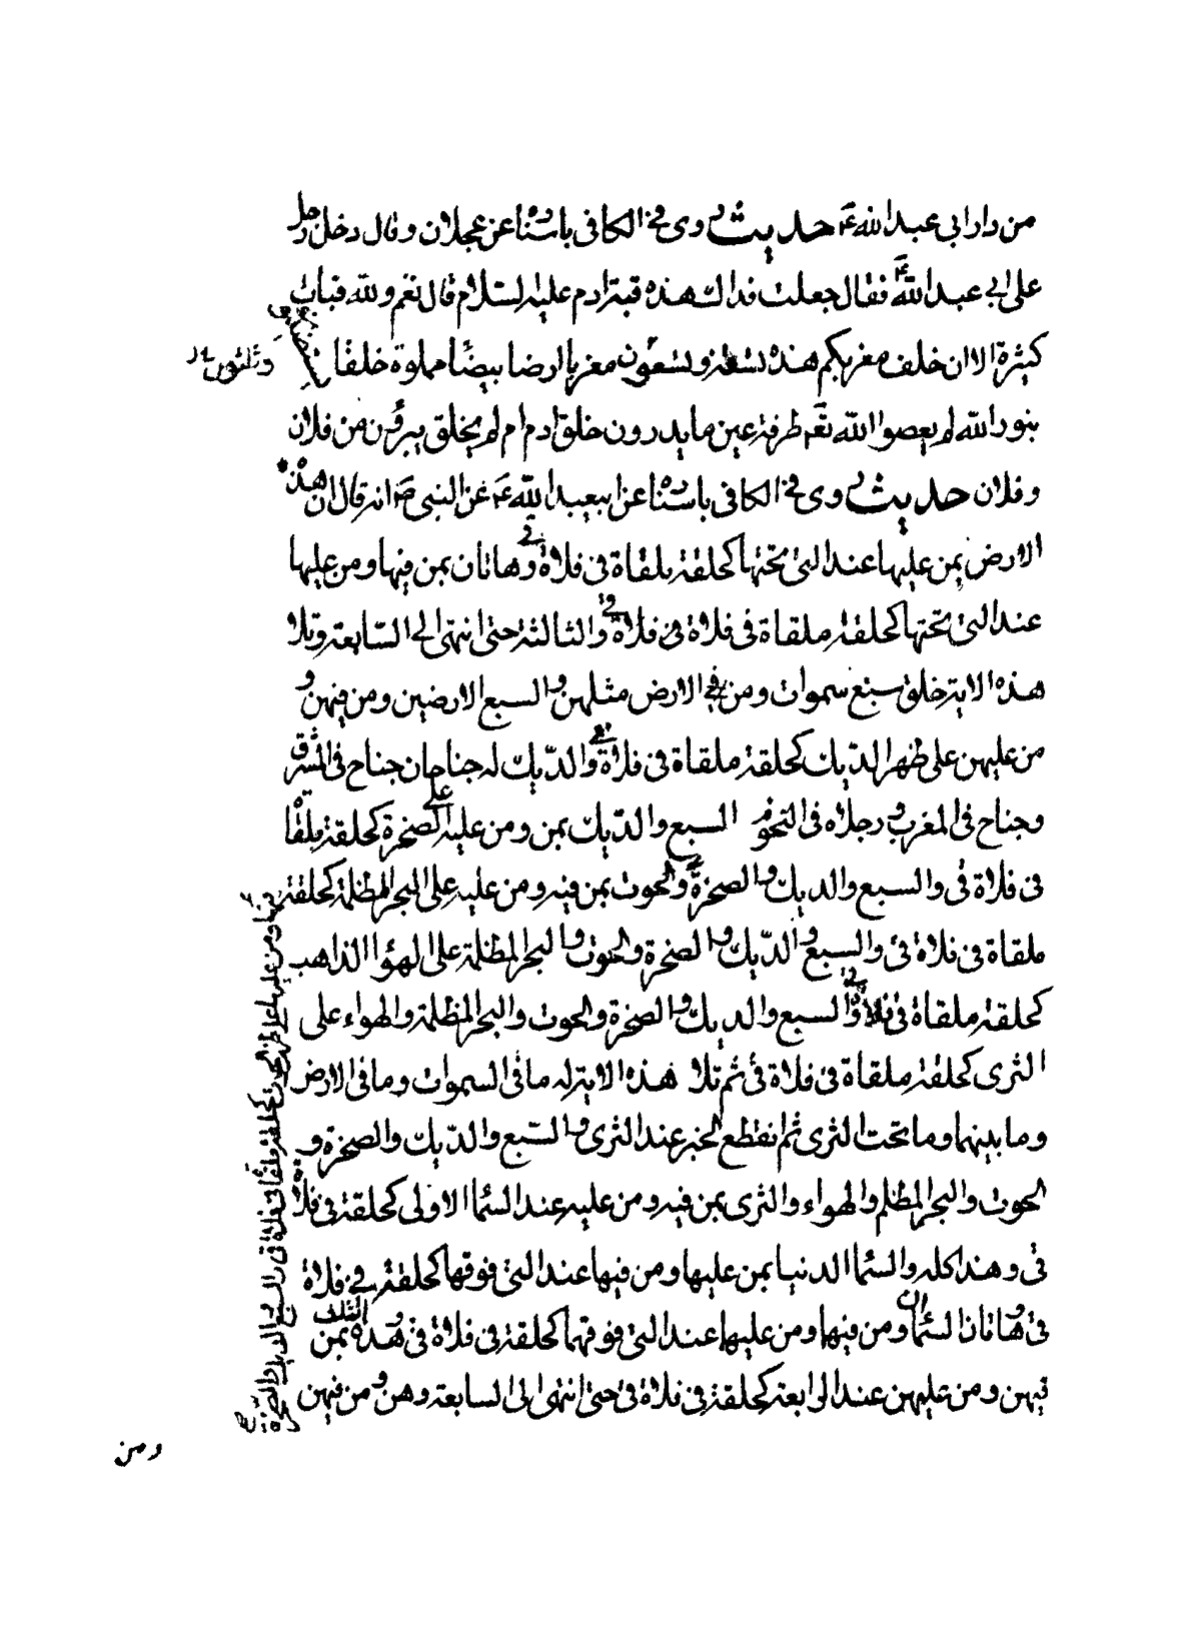 من دار ابي عبد الله ع حديث روى في الكافي باسناده عن عجلان وقال دخل رجل
على ابي عبد الله ع فقال جعلت فداك هذه قبة ادم عليه السلام قال نعم ولله قباب
كثيرة الا ان خلف مغربكم هذه تسعة وتسعون مغربا ارضا بيضا مملوة خلقا
وثلثون
بنور الله لم يعصوا الله تع طرفة عين ما يدرون خلق ادم ام لم يخلق يبرؤن من فلان
وفلان حديث روى في الكافي باسناده عن ابيعبد الله ع عن النبي ص انه قال ان هذه
الارض بمن عليها عند التي تحتها كحلقة ملقاة في فلاة في وهاتان بمن فيها ومن عليها
عند التي تحتها كحلقة ملقاة في فلاة في فلاة في والثالثة حتى انتهى الى السابعة وتلا
هذه الاية خلق سبع سموات ومن في الارض مثلهن والسبع الارضين ومن فيهن و
من عليهن على ظهر الديك كحلقة ملقاة في فلاة في والديك له جناحان جناح في المشرق
وجناح في المغرب ورجلاه في التخوم السبع والديك بمن ومن عليه على الصخرة كحلقة ملقا
في فلاة في والسبع والديك والصخرة والحوت بمن فيه ومن عليه على البحر المظلمة كحلقة
ملقاة في فلاة في والسبع والديك والصخرة والحوت والبحر المظلمة على الهؤا الذاهب
كحلقة ملقاة في فلاة في والسبع والديك والصخرة والحوت والبحر المظلمة والهواء على
الثرى كحلقة ملقاة في فلاة في ثم تلا هذه الاية له ما في السموات وما في الارض
وما بينهما وما تحت الثرى ثم انقطع الخبر عند الثرى والسبع والديك والصخرة و
الحوت والبحر المظلم والهواء والثرى بمن فيه ومن عليه عند السما الاولى كحلقة في فلاة
في وهذا كله والسما الدنيا بمن عليها ومن فيها عند التي فوقها كحلقة في فلاة
في وهاتان السماان ومن فيها ومن عليها عند التي فوقهما كحلقة في فلاة في وهذه الثلث بمن
فيهن ومن عليهن عند الرابعة كحلقة في فلاة في حتى انتهى الى السابعة وهن ومن فيهن
فيها ومن عليها على ظهر الحوت كحلقة ملقاة في فلاة في والسبع والديك والصخرة
ومن